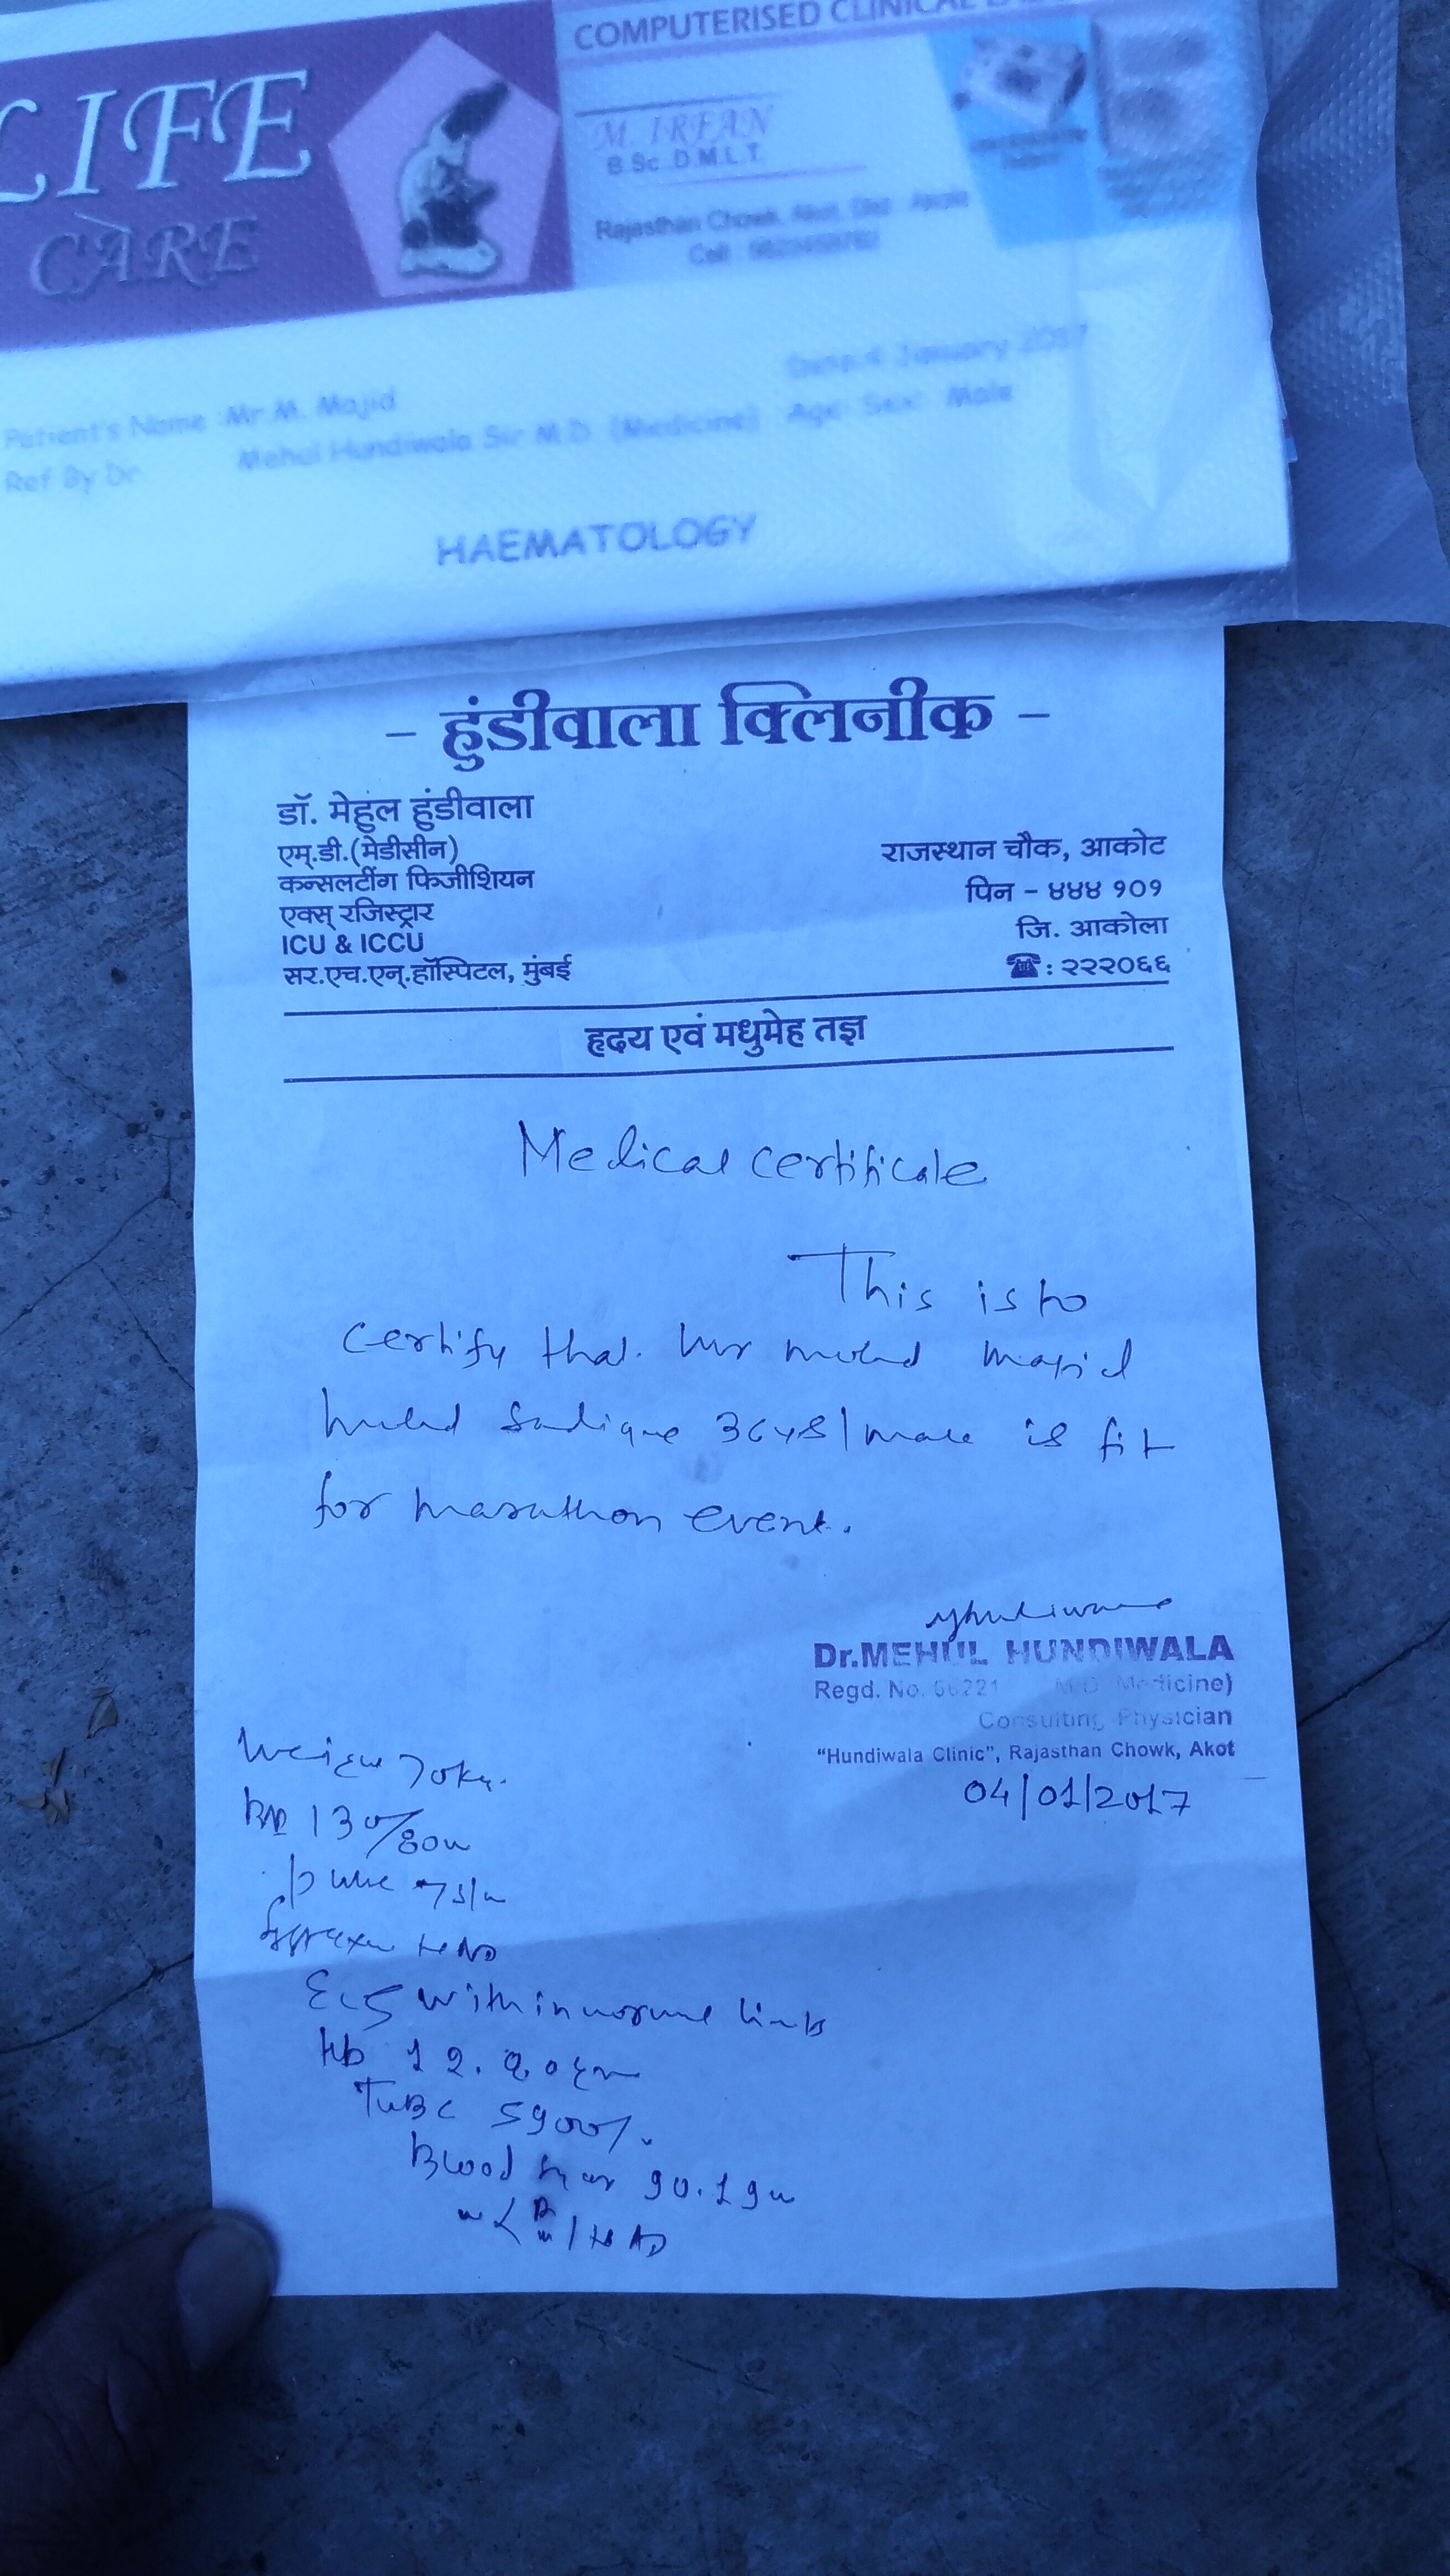 COMPUTERISED CLINICAL
LIFE
CARE
M. IRFAN
B.Sc. D.M.L.T.
Rajasthan Chowk, Akot, Dist. Akola
Cell :
Date:4 January 2017
Patient's Name :Mr.M. Majid
Age: Sex: Male
Ref By Dr. Mehul Hundiwala Sir M.D. (Medicine)
HAEMATOLOGY
- हुंडीवाला क्लिनीक -
डॉ. मेहुल हुंडीवाला
एम्.डी.(मेडीसीन)
कन्सलटींग फिजीशियन
एक्स् रजिस्ट्रार
ICU & ICCU
सर.एच.एन्.हॉस्पिटल, मुंबई
राजस्थान चौक, आकोट
पिन - ४४४ १०१
जि. आकोला
☎ : २२२०६६
हृदय एवं मधुमेह तज्ञ
Medical certificate
This is to
certify that. Mr mohd majid
mohd Sadique 36ys/male is fit
for marathon event.
Dr.MEHUL HUNDIWALA
Regd. No. M.D. Medicine)
Consulting Physician
"Hundiwala Clinic", Rajasthan Chowk, Akot
04/01/2017
Weight 70kg.
BP 130/80
pulse
NAD
ECG within normal limits
Hb 12.
5900/.
Blood sugar 90.1
NAD